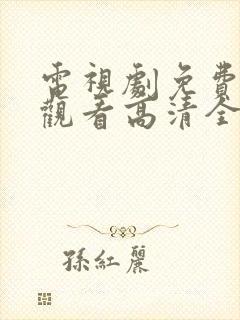 電視劇免費
觀看高清全
孫紅麗